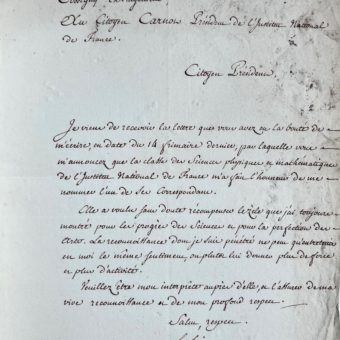 Au Citoyen Carnot Président de l'Institut National
de France.
Citoyen Président.
Je viens de recevoir la lettre que vous avez eu la bonté de
m'écrire, en date du 14 frimaire dernier, par laquelle vous
m'annoncez que la classe des Sciences physiques et mathématiques
de l'Institut National de France m'a fait l'honneur de me
nommer l'un de ses Correspondans.
Elle a voulu sans doute récompenser le zèle que j'ai toujours
montré pour les progrès des Sciences et pour la perfection des
Arts. La reconnoissance dont je suis pénétré ne peut qu'entretenir
en moi le même sentiment, ou plutôt lui donner plus de force
et plus d'activité.
Veuillez être mon interprète auprès d'elle, et l'assurer de ma
vive reconnoissance et de mon profond respect.
Salut, respect.